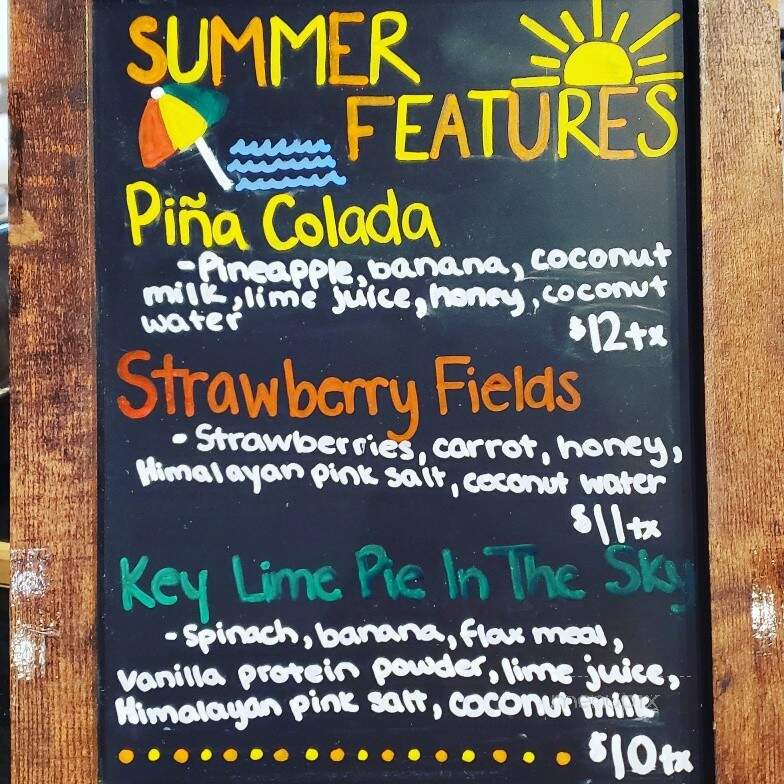 SUMMER
FEATURES
Piña Colada
-Pineapple, banana, coconut
milk, lime juice, honey, coconut
water
$12+x
Strawberry Fields
- Strawberries, carrot, honey,
Himalayan pink salt, coconut water
$11+x
Key Lime Pie In The Sky
-Spinach, banana, flax meal,
vanilla protein powder, lime juice,
Himalayan pink salt, coconut milk
$10+x